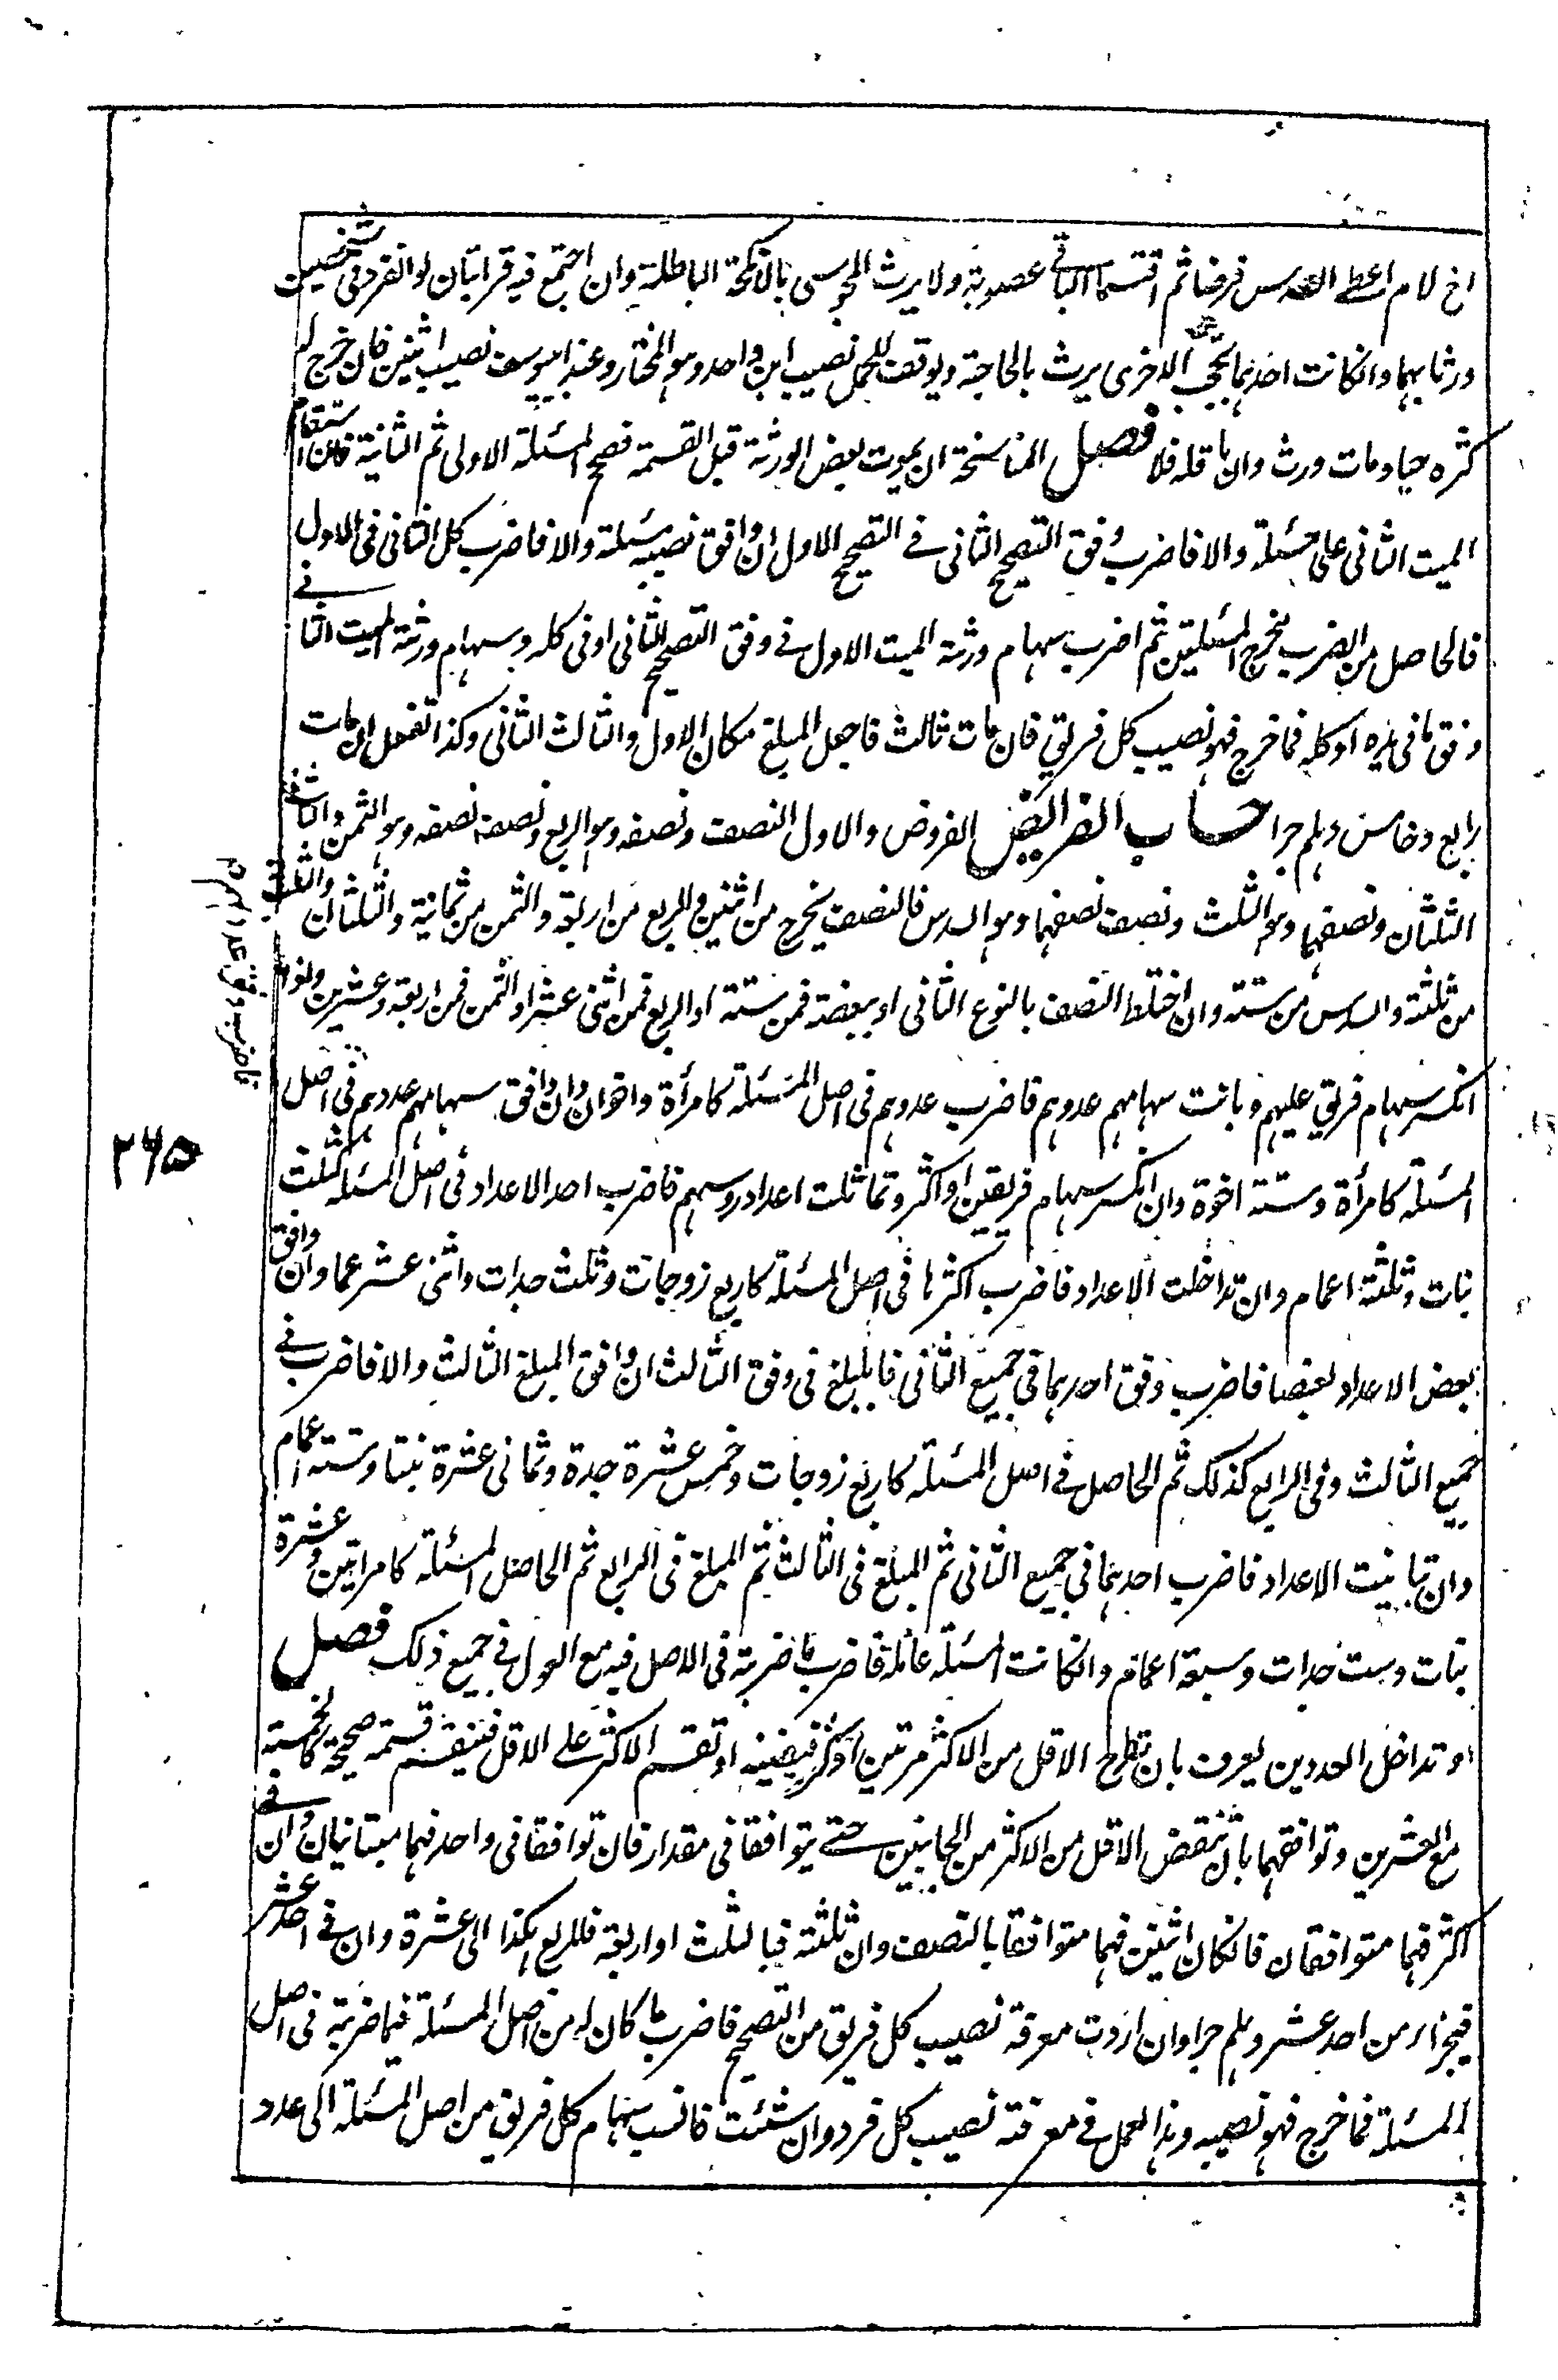 اخ لام اعطى السدس فرضا ثم اقتسما الباقى عصوبة ولا يرث المجوسى بالانكحة الباطلة وان اجتمع فيه قرابتان لو انفردتا فى شخصين
ورثا بهما وانكانت احدهما تحجب الاخرى يرث بالحاجبة ويوقف للحمل نصيب ابن واحد وهو المختار وعند ابى يوسف نصيب اثنين فان خرج
كثره حيا ومات ورث وان ما قله فلا فصل المناسخة ان يموت بعض الورثة قبل القسمة فصحح المسئلة الاولى ثم الثانية فان استقام
الميت الثانى على مسئلته والا فاضرب وفق التصحيح الثانى فى التصحيح الاول ان وافق نصيبه مسئلته والا فاضرب كل الثانى فى الاول
فالحاصل من الضرب مخرج المسئلتين ثم اضرب سهام ورثة الميت الاول فى وفق التصحيح الثانى او فى كله وسهام ورثة الميت الثانى فى
وفق ما فى يده او كله فما خرج فهو نصيب كل فريق فان مات ثالث فاجعل المبلغ مكان الاول والثالث الثانى وكذا تفعل ان مات
رابع وخامس وهلم جرا حساب الفرائض الفروض والاول النصف ونصفه وهو الربع ونصف نصفه وهو الثمن والثانى
الثلثان ونصفهما وهو الثلث ونصف نصفهما وهو السدس فالنصف يخرج من اثنين والربع من اربعة والثمن من ثمانية والثلثان والثلث
من ثلثة والسدس من ستة وان اختلط النصف بالنوع الثانى او ببعضه فمن ستة او الربع فمن اثنى عشر او الثمن فمن اربعة وعشرين واذا
انكسر سهام فريق عليهم وباينت سهامهم عددهم فاضرب عددهم فى اصل المسئلة كامرأة واخوان وان وافق سهامهم عددهم فى اصل
المسئلة كامرأة وستة اخوة وان انكسر سهام فريقين او اكثر وتماثلت اعداد رؤسهم فاضرب احد الاعداد فى اصل المسئلة كثلث
بنات وثلثة اعمام وان تداخلت الاعداد فاضرب اكثرها فى اصل المسئلة كاربع زوجات وثلث جدات واثنى عشر عما وان وافق
بعض الاعداد بعضا فاضرب وفق احدهما فى جميع الثانى فالمبلغ فى وفق الثالث ان وافق المبلغ الثالث والا فاضرب فى
جميع الثالث وفى الرابع كذلك ثم الحاصل فى اصل المسئلة كاربع زوجات وخمس عشرة جدة وثمانى عشرة بنتا وستة اعمام
وان تباينت الاعداد فاضرب احدهما فى جميع الثانى ثم المبلغ فى الثالث ثم المبلغ فى الرابع ثم الحاصل المسئلة كامراتين وعشرة
بنات وست جدات وسبعة اعمام وانكانت المسئلة عائلة فاضرب ما ضربته فى الاصل فيه مع العول فى جميع ذلك فصل
او تداخل العددين يعرف بان تطرح الاقل من الاكثر مرتين او اكثر فيفنيه او تقسم الاكثر على الاقل فينقسم قسمة صحيحة كالخمسة
مع العشرين وتوافقهما بان تنقص الاقل من الاكثر من الجانبين حتى يتوافقا فى مقدار فان توافقا فى واحد فهما متباينان وان فى
اكثر فهما متوافقان فانكان اثنين فهما متوافقا بالنصف وان ثلثة فبالثلث او اربعة فللربع هكذا الى عشرة وان فى احد عشر
فبجزء من احد عشر وهلم جرا وان اردت معرفة نصيب كل فريق من التصحيح فاضرب ما كان له من اصل المسئلة فيما ضربته فى اصل
المسئلة فما خرج فهو نصيبه وهذا العمل فى معرفة نصيب كل فرد وان شئت فانسب سهام كل فريق من اصل المسئلة الى عدد
فاضرب وفق عددهم
٢٦٥